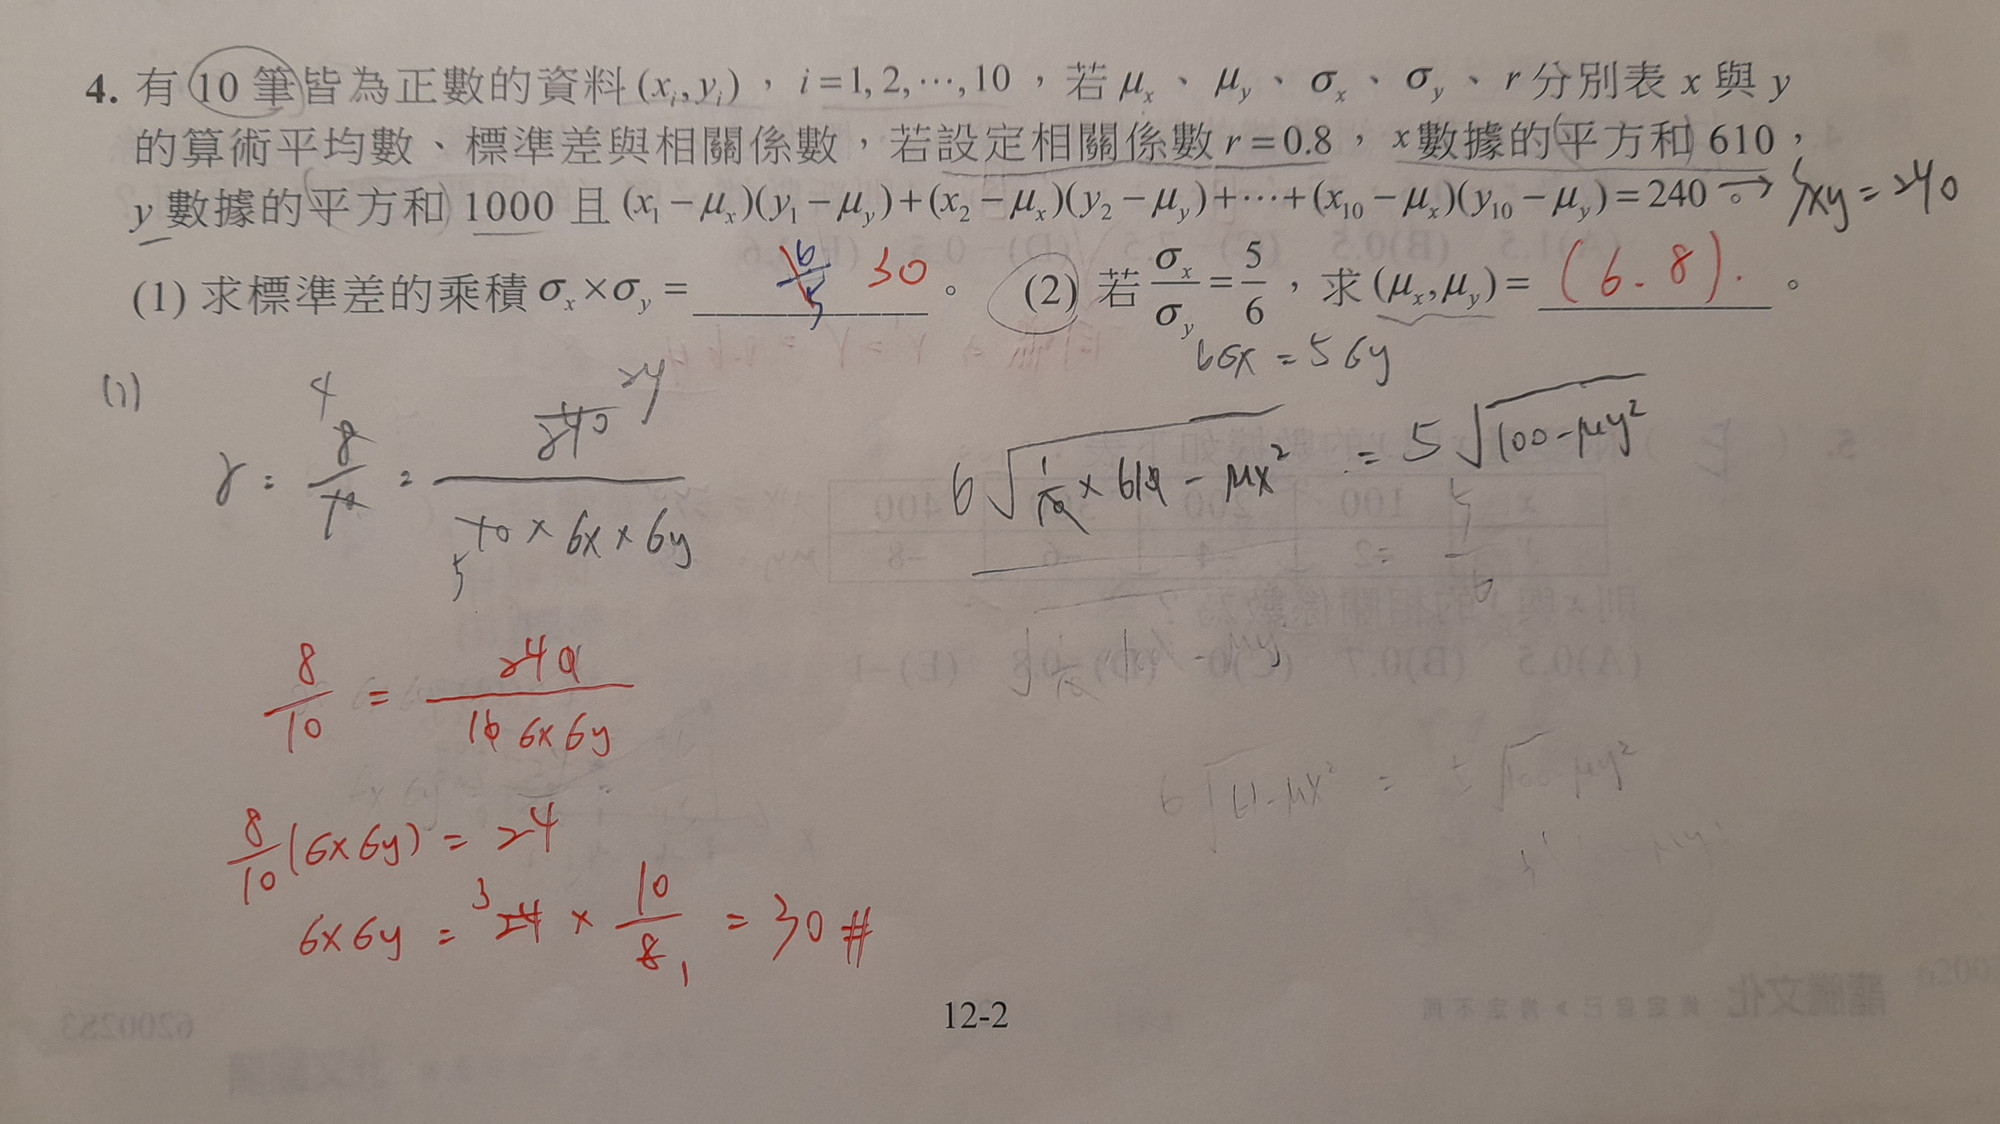 4. 有 10 筆皆為正數的資料 (xᵢ, yᵢ)，i = 1, 2, ⋯, 10，若 μₓ、μᵧ、σₓ、σᵧ、r 分別表 x 與 y
的算術平均數、標準差與相關係數，若設定相關係數 r = 0.8，x 數據的平方和 610，
y 數據的平方和 1000 且 (x₁ − μₓ)(y₁ − μᵧ) + (x₂ − μₓ)(y₂ − μᵧ) + ⋯ + (x₁₀ − μₓ)(y₁₀ − μᵧ) = 240。→ Sxy = 240
(1) 求標準差的乘積 σₓ × σᵧ = 30。 (2) 若 σₓ/σᵧ = 5/6，求 (μₓ, μᵧ) = (6. 8).。
6σx = 5σy
(1)
r = 8/10 = 240/(10 × σx × σy)
4 24 5
6√(1/10 × 610 − μx²) = 5√(100 − μy²)
5/6
8/10 = 240/(10 σx σy)
6√(61 − μx²) = 5√(100 − μy²)
8/10 (σx σy) = 24
σx σy = 24 × 10/8 = 30 #
3 1
12-2